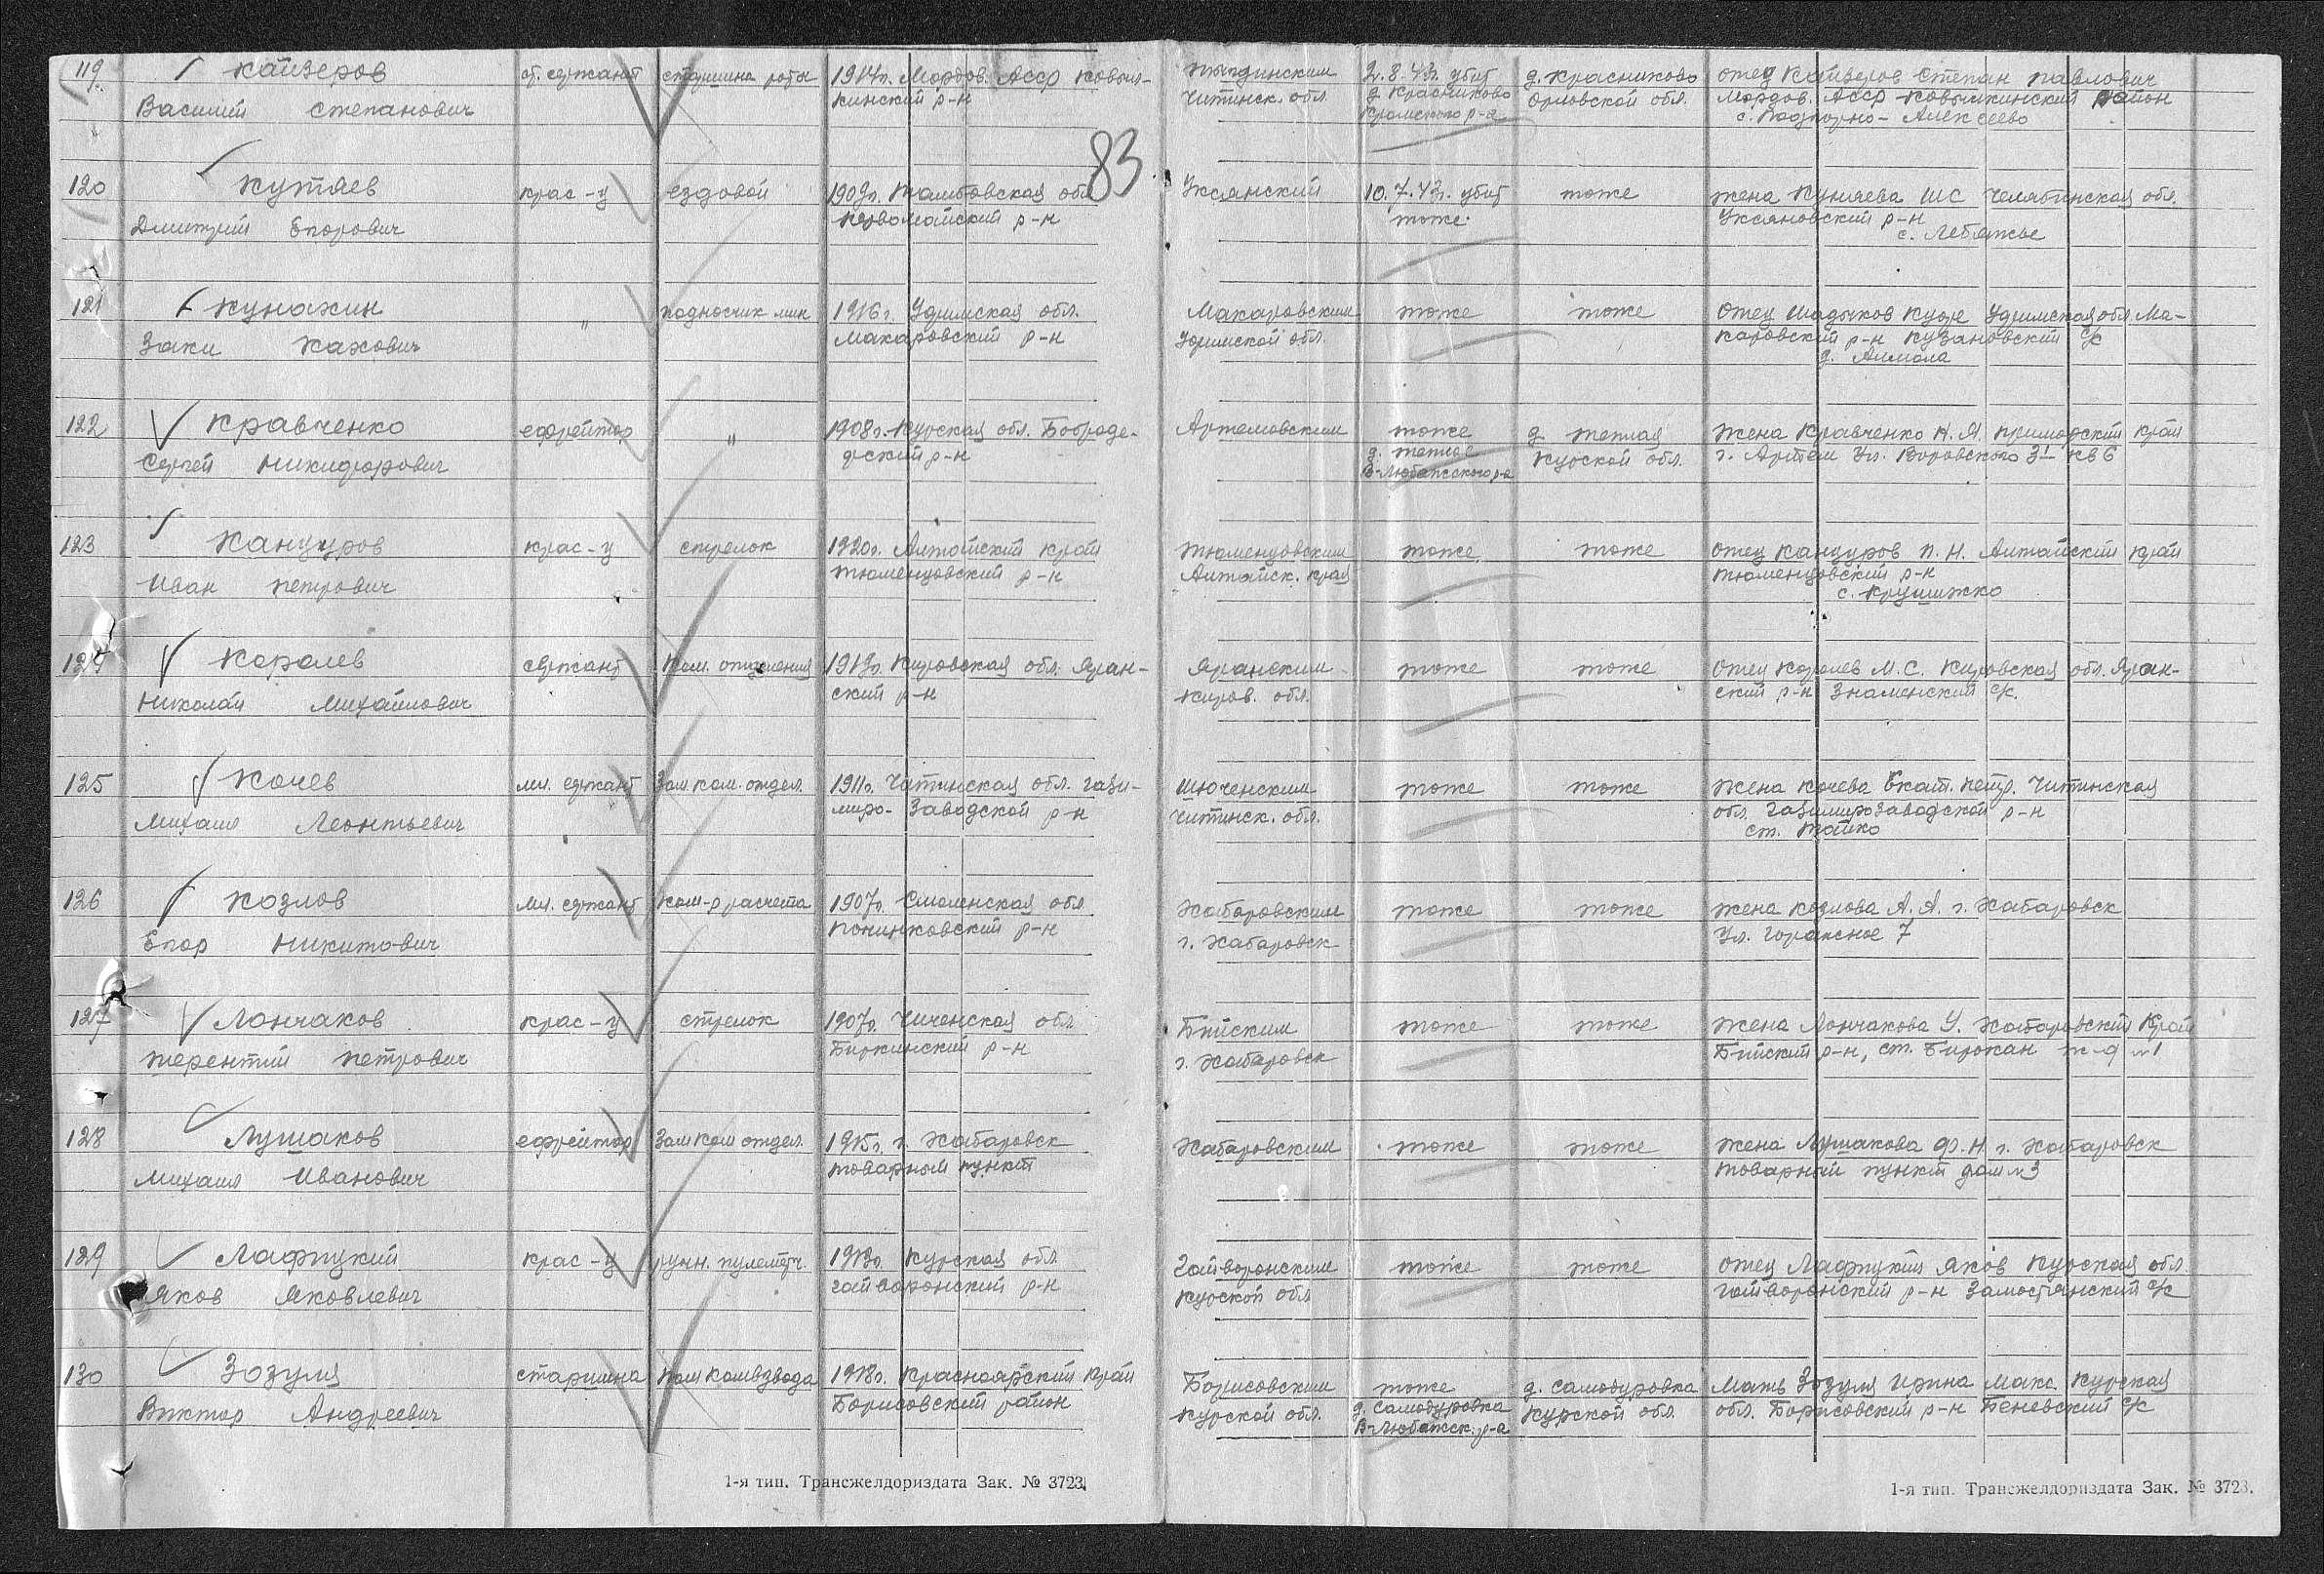 83
119 Кайзеров ст. сержант старшина роты 1914г. Мордов. Асср Ковыл- 2.8.43г. убит д. Красниково отец Кайзеров Степан Павлович
Василий Степанович кинский р-н Читинск. обл. д. Красниково Орловской обл. Мордов. Асср Ковылкинский район
Кромского р-а Алексеево
120 Кутяев крас-ц ездовой 1909г. Тамбовская обл Уксянский 10.7.43г. убит тоже жена ШС Челябинская обл.
Дмитрий Егорович Первомайский р-н тоже Уксяновский р-н
с. Лебяжье
121 Кунахин " подносчик мин 1916г. Уфимская обл. Макаровским тоже тоже отец Уфимская обл. Ма-
Заки Макаровский р-н Уфимской обл. каровский р-н с/с
д.
122 Кравченко ефрейтор " 1908г. Курская обл. Артемовским тоже д. Теплая жена Кравченко Н. Я. Приморский край
Сергей Никифорович р-н д. Теплое Курской обл. г. Артем ул. Воровского кв 6
В-Любажского р-а
123 Канцуров крас-ц стрелок 1920г. Алтайский край Тюменцовским тоже тоже отец Канцуров П. Н. Алтайский край
Иван Петрович Тюменцовский р-н Алтайск. края Тюменцовский р-н
с.
124 Королев сержант Ком. отделения 1919г. Кировская обл. Яран- Яранским тоже тоже отец Королев М. С. Кировская обл. Яран-
Николай Михайлович ский р-н Киров. обл. ский р-н Знаменский с/с.
125 Кочев мл. сержант Зам. ком. отдел. 1911г. Читинская обл. Гази- тоже тоже жена Кочева Екат. Петр. Читинская
Михаил Леонтьевич миро-Заводской р-н Читинск. обл. обл. Газимирозаводской р-н
126 Козлов мл. сержант Ком-р расчета 1907г. Смоленская обл Хабаровским тоже тоже жена Козлова А. А. г. Хабаровск
Егор Никитович Починковский р-н г. Хабаровск ул. 7
127 Лончаков крас-ц стрелок 1907г. обл. тоже тоже жена Лончакова У. Хабаровский край
Терентий Петрович р-н г. Хабаровск р-н, ст.
128 Лушаков ефрейтор Зам Ком отдел. 1915г. г. Хабаровск Хабаровским тоже тоже жена Лушакова Ф. Н. г. Хабаровск
Михаил Иванович товарный пункт товарный пункт дом №3
129 крас-ц ручн. пулеметч. 1913г. Курская обл. Гайворонским тоже тоже отец Яков Курская обл.
Яков Яковлевич Гайворонский р-н Курской обл Гайворонский р-н Замостянский с/с
130 Зозуля старшина Пом Комвзвода 1918г. Красноярский край Борисовским тоже д. Самодуровка Мать Зозуля Ирина Макс. Курская
Виктор Андреевич Борисовский район Курской обл. д. Самодуровка Курской обл. обл. Борисовский р-н с/с
В-Любажск. р-а
1-я тип. Трансжелдориздата Зак. № 3723. 1-я тип. Трансжелдориздата Зак. № 3723.